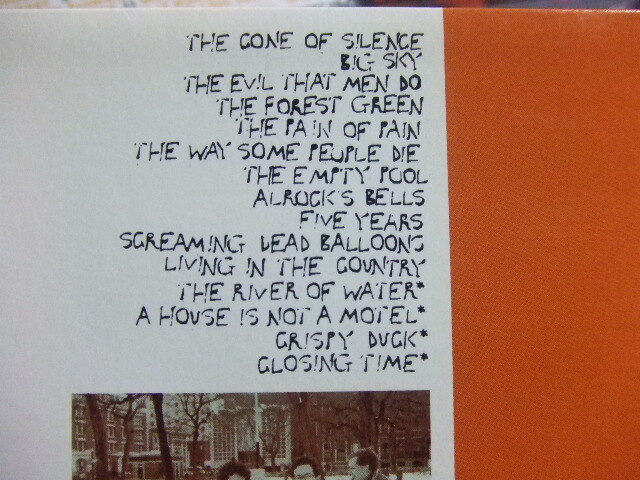 THE CONE OF SILENCE
BIG SKY
THE EVIL THAT MEN DO
THE FOREST GREEN
THE PAIN OF PAIN
THE WAY SOME PEOPLE DIE
THE EMPTY POOL
ALROCK'S BELLS
FIVE YEARS
SCREAMING DEAD BALLOONS
LIVING IN THE COUNTRY
THE RIVER OF WATER*
A HOUSE IS NOT A MOTEL*
CRISPY DUCK*
CLOSING TIME*